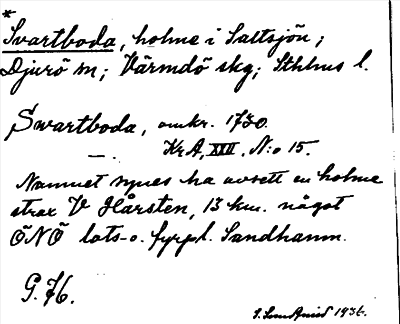 *
Svartboda, holme i Saltsjön;
Djurö sn; Värmdö skg; Sthlms l.
Swartboda, omkr. 1730.
KrA, XIII, N:o 15.
Namnet synes ha avsett en holme
strax V Hårsten, 13 km. något
ÖNÖ lots- o. fyrpl. Sandhamn.
G. 76.
1936.